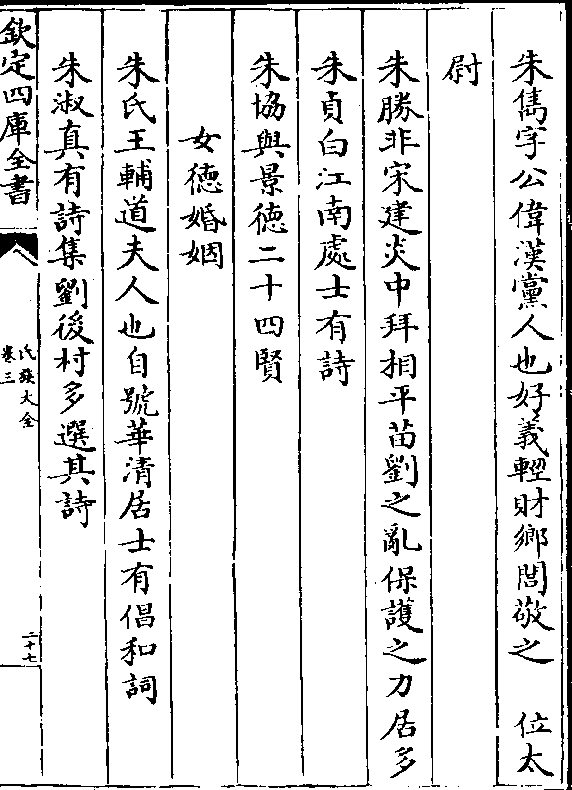 朱儁字公偉漢黨人也好義輕財鄉閭敬之　位太
尉
朱勝非宋建炎中拜相平苗劉之亂保護之力居多
朱貞白江南處士有詩
朱協與景德二十四賢
女德婚姻
朱氏王輔道夫人也自號華清居士有倡和詞
朱淑真有詩集劉後村多選其詩
欽定四庫全書
氏族大全
卷三
二十七